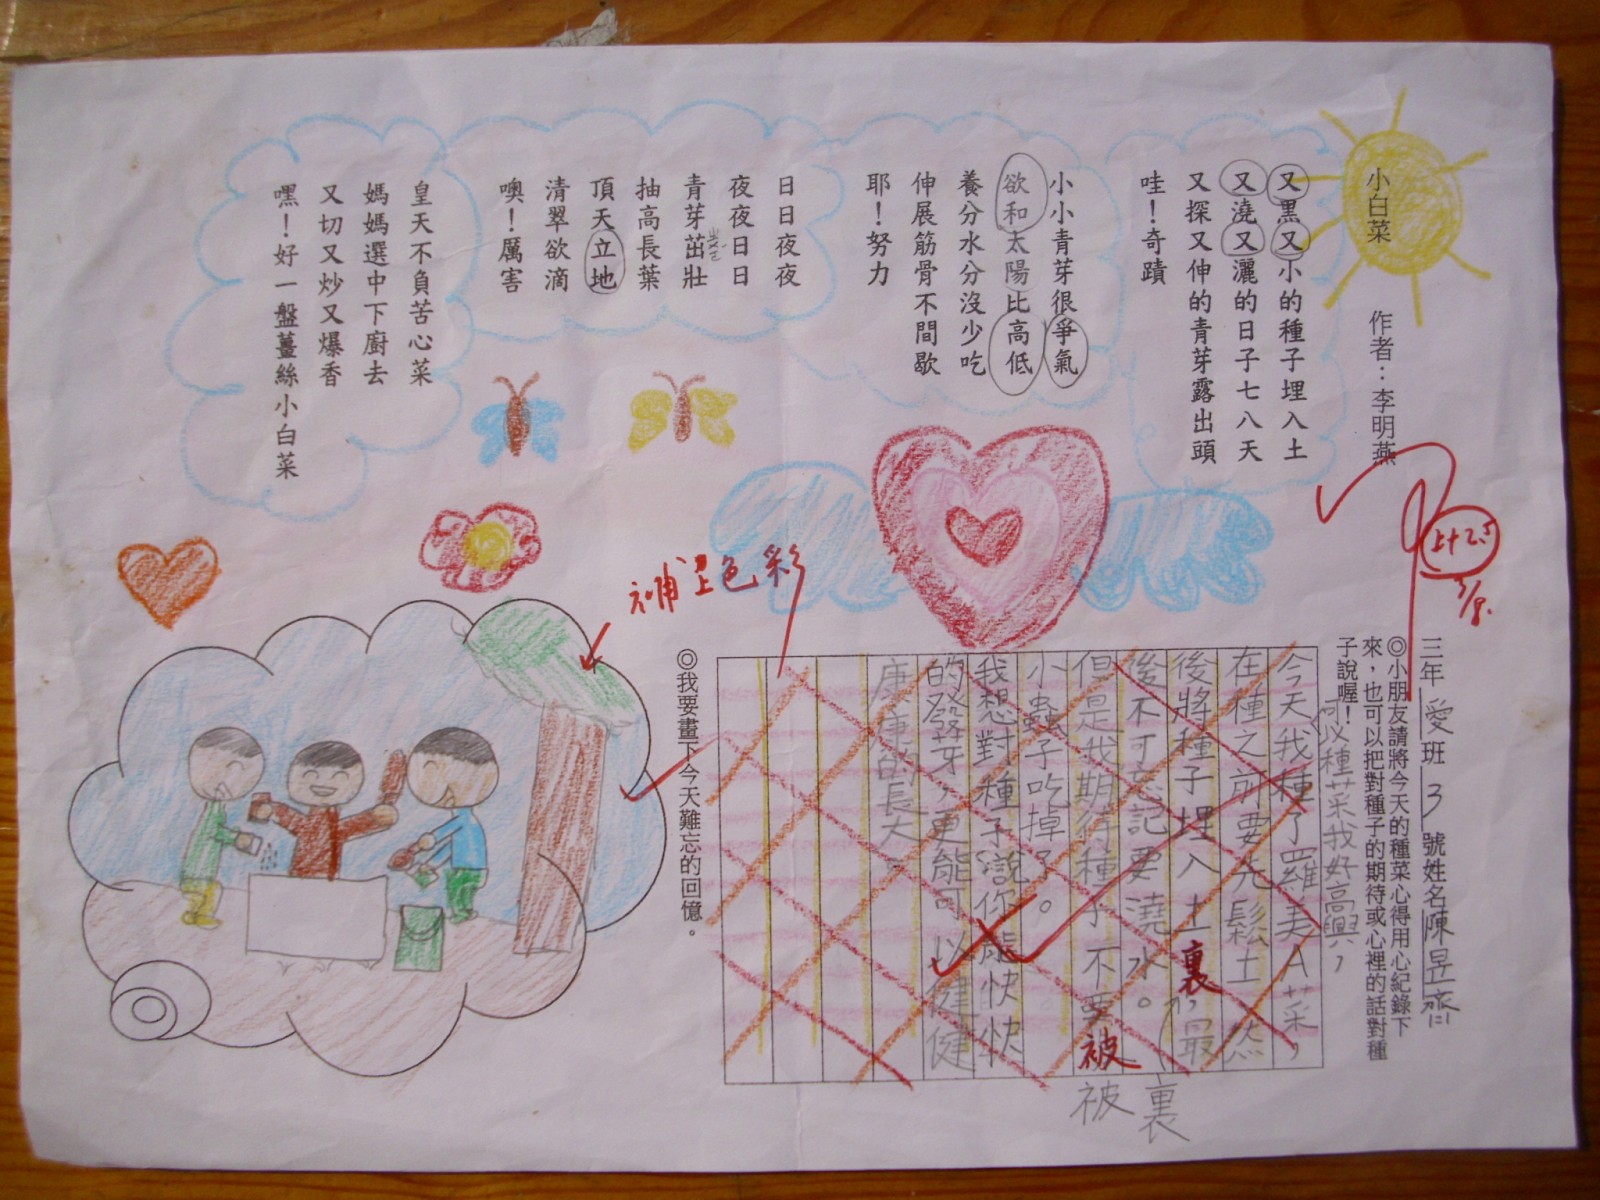 小白菜
作者：李明燕
又黑又小的種子埋入土
又澆又灑的日子七八天
又探又伸的青芽露出頭
哇！奇蹟
小小青芽很爭氣
欲和太陽比高低
養分水分沒少吃
伸展筋骨不間歇
耶！努力
日日夜夜
夜夜日日
青芽茁壯
抽高長葉
頂天立地
清翠欲滴
噢！厲害
皇天不負苦心菜
媽媽選中下廚去
又切又炒又爆香
嘿！好一盤薑絲小白菜
補上色彩
三年愛班3號姓名陳昱齊
◎小朋友請將今天的種菜心得用心紀錄下
來，也可以把對種子的期待或心裡的話對種
子說喔！
可以種菜我好高興，
今天我種了羅美A菜，
在種之前要先鬆土 然
後將種子埋入土裏，最
後不可忘記要澆水。
但是我期待種子不要被
小蟲子吃掉了。
我想對種子說你能快快
的發芽，更能可以健健
康康的長大。
裏
被
◎我要畫下今天難忘的回憶。